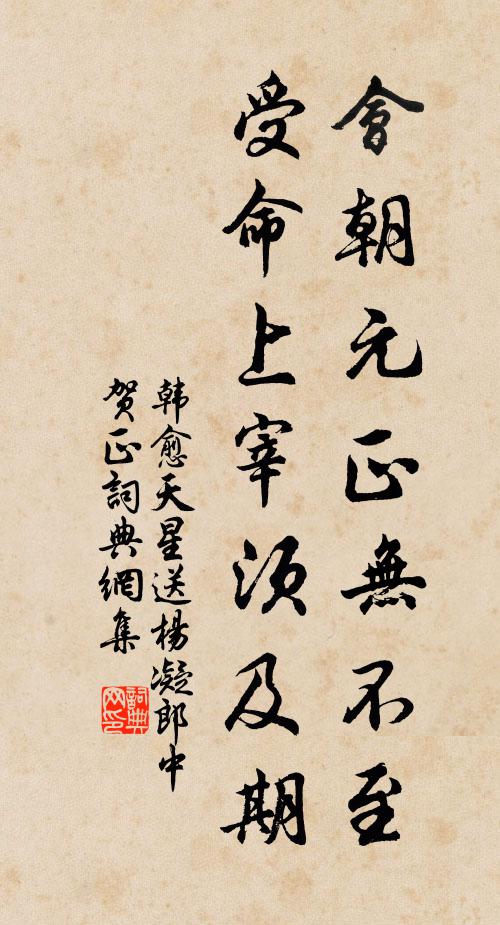 會朝元正無不至
受命上宰須及期
韩愈天星送楊凝郎中
贺正詞典網集
詞典网印